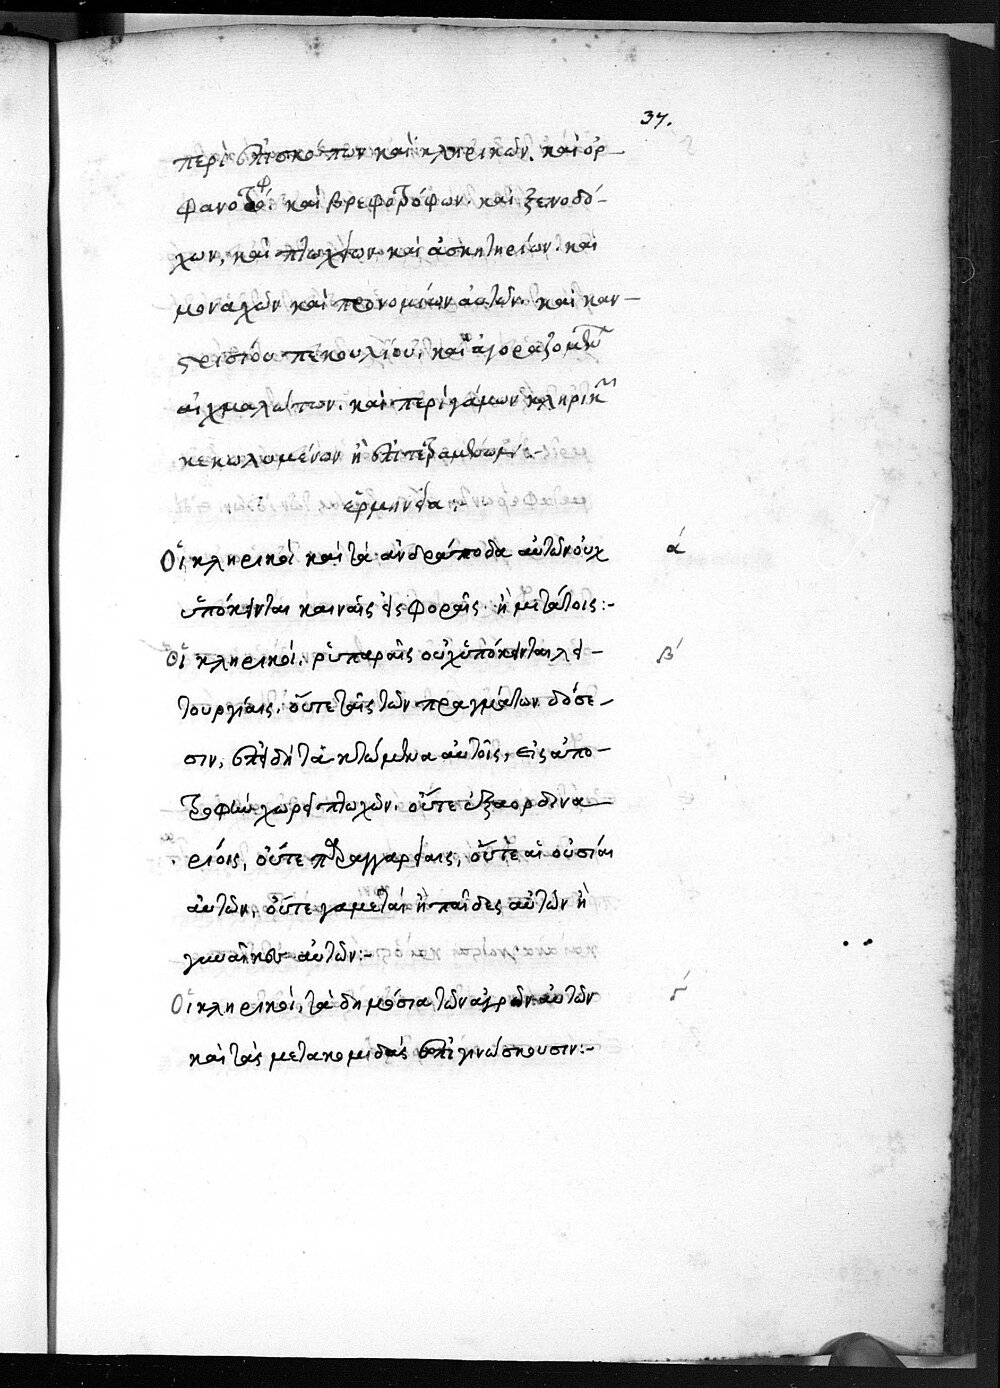 37.
περὶ ἐπισκόπων καὶ κληρικῶν. καὶ ὀρ-
φανοτρόφ. καὶ βρεφοτρόφων. καὶ ξενοδό-
χων, καὶ πτωχείων καὶ ἀσκητηρίων. καὶ
μοναχῶν καὶ προνομίων αὐτῶν. καὶ καν-
στρισίου πεκουλίου. καὶ ἀγοραζομένων
αἰχμαλώτων. καὶ περὶ γάμων κληρικῶν
κεκωλυμένων ἢ ἐπιτετραμμένων:-
ἑρμηνεία:
Οἱ κληρικοὶ καὶ τὰ ἀνδράποδα αὐτῶν οὐχ
ά
ὑπόκεινται καιναῖς εἰσφοραῖς. ἢ μιτάτοις:-
Οἱ κληρικοί. ῥυπαραῖς οὐχ ὑπόκεινται λει-
β
τουργίαις. οὔτε ταῖς τῶν πραγμάτων δόσε-
σιν, ἐπειδὴ τὰ κτώμενα αὐτοῖς, εἰς ἀπο-
τροφὴν χωρεῖ πτωχῶν. οὔτε ἐξτραορδινα-
ρίοις, οὔτε παραγγαρείαις, οὔτε αἱ οὐσίαι
αὐτῶν, οὔτε γαμεταὶ ἢ παῖδες αὐτῶν ἢ
γυναῖκες αὐτῶν:-
Οἱ κληρικοί, τὰ δημόσια τῶν ἀγρῶν αὐτῶν
καὶ τὰς μετακομιδὰς ἐπιγινώσκουσιν:-